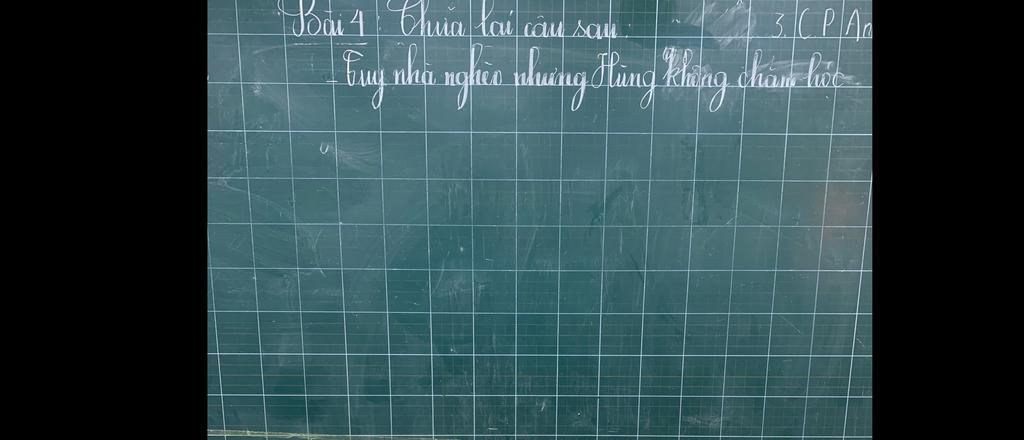 Bài 4: Chữa lại câu sau: 3. C P An
- Tuy nhà nghèo nhưng Hùng không chăm học